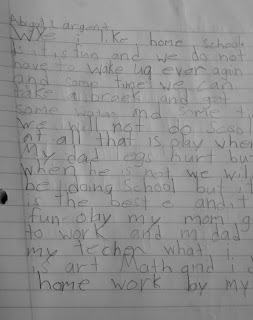 Abigail Largent
Wye i like home school
is it is fun and we do not
have to wake up ever again
and some times we can
take a break and get
some water and some ti
we will not do scool
at all that is play when
My dad legs hurt but
when he is not we wil
be doing school but it
is the best e and it
fun oby my mom g
to work and m dad
my techer what i
is art Math and i d
home work by my